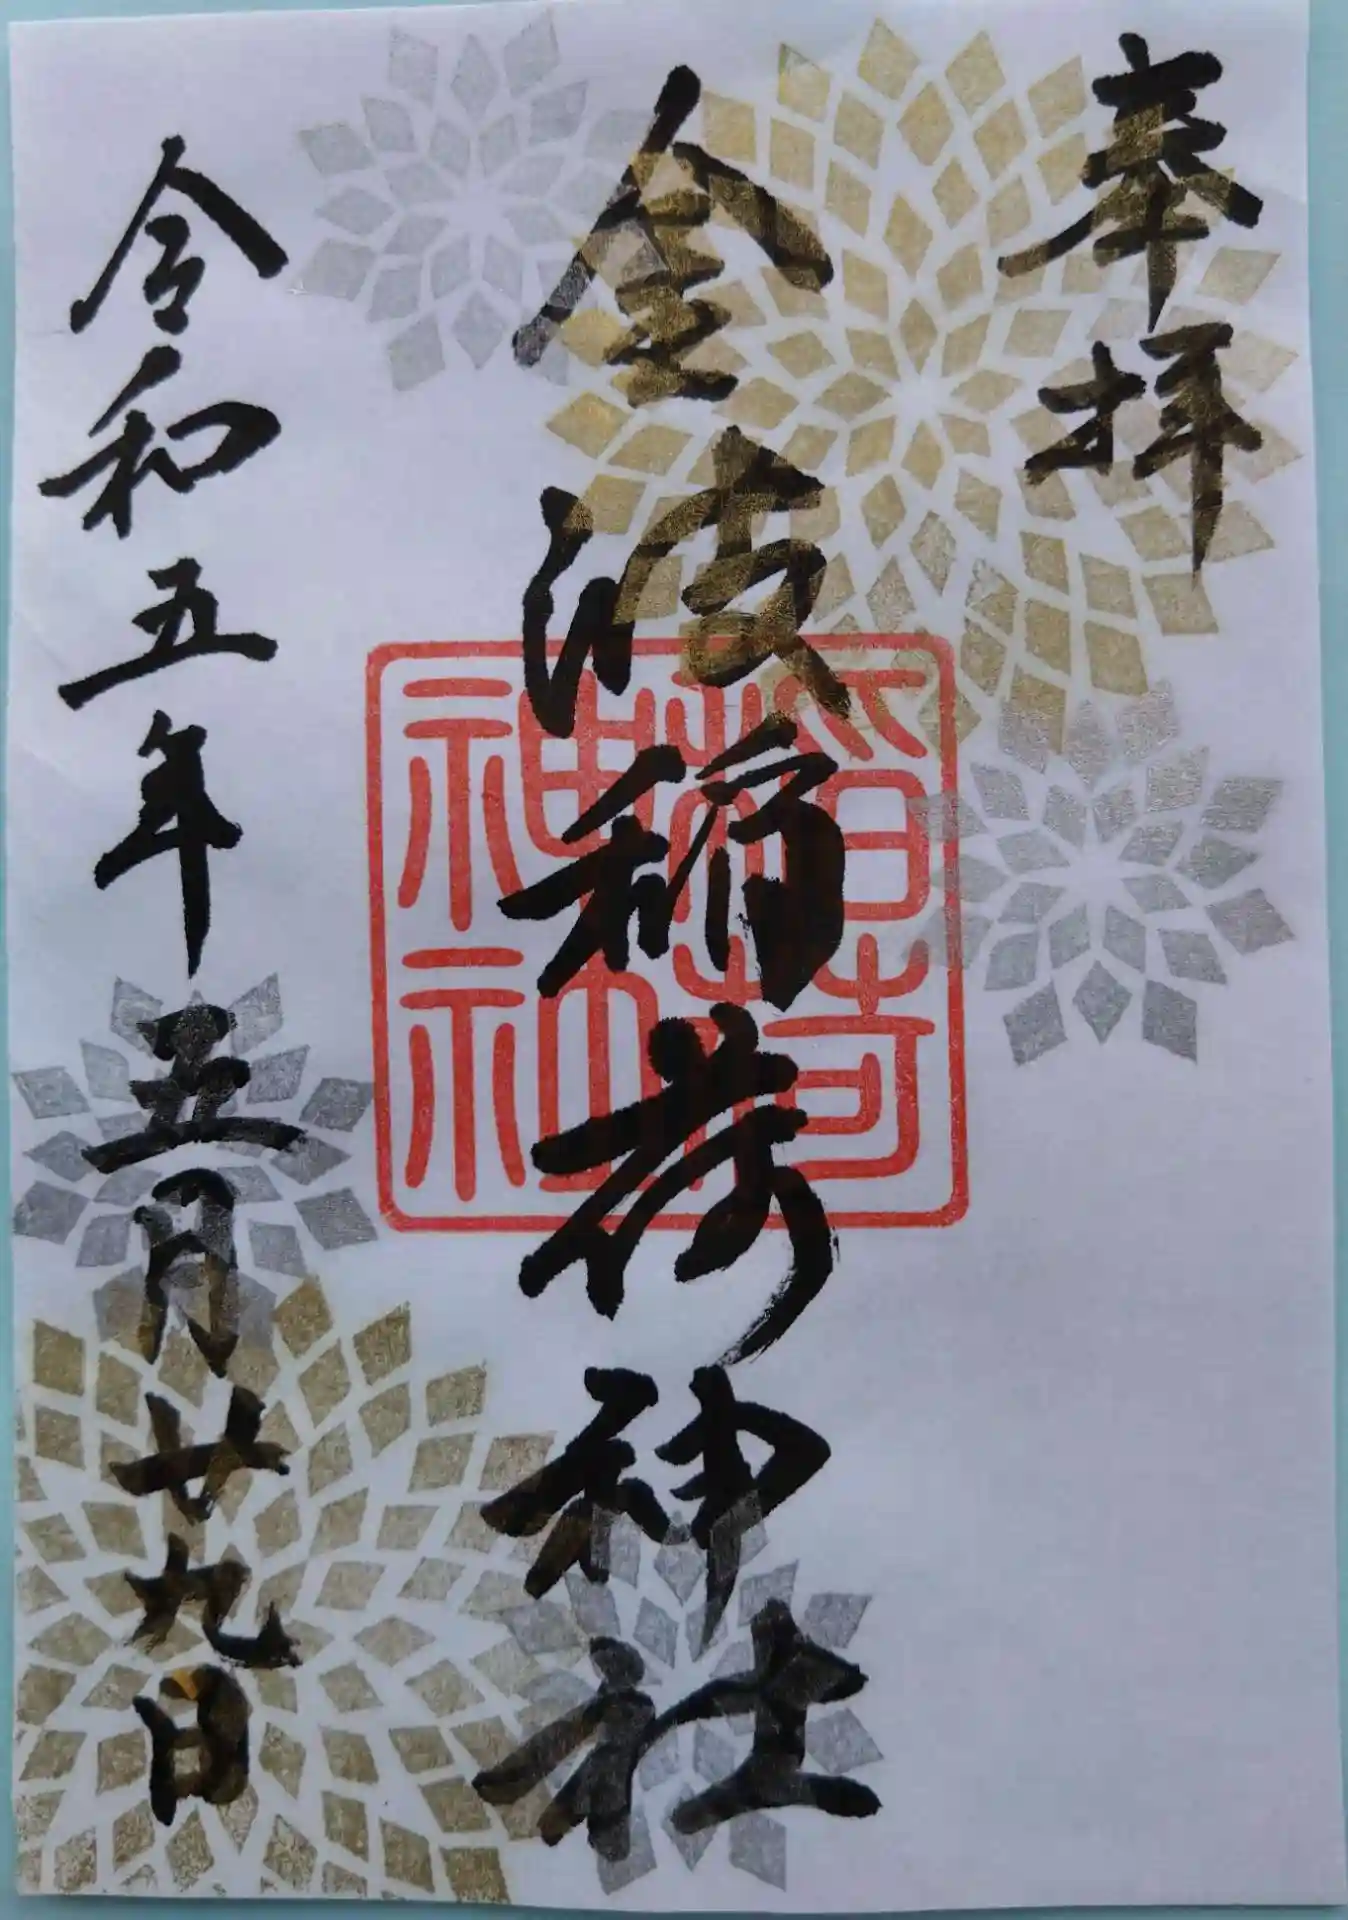 奉拝
金波稲荷神社
稲荷
神社
令和五年五月廿九日